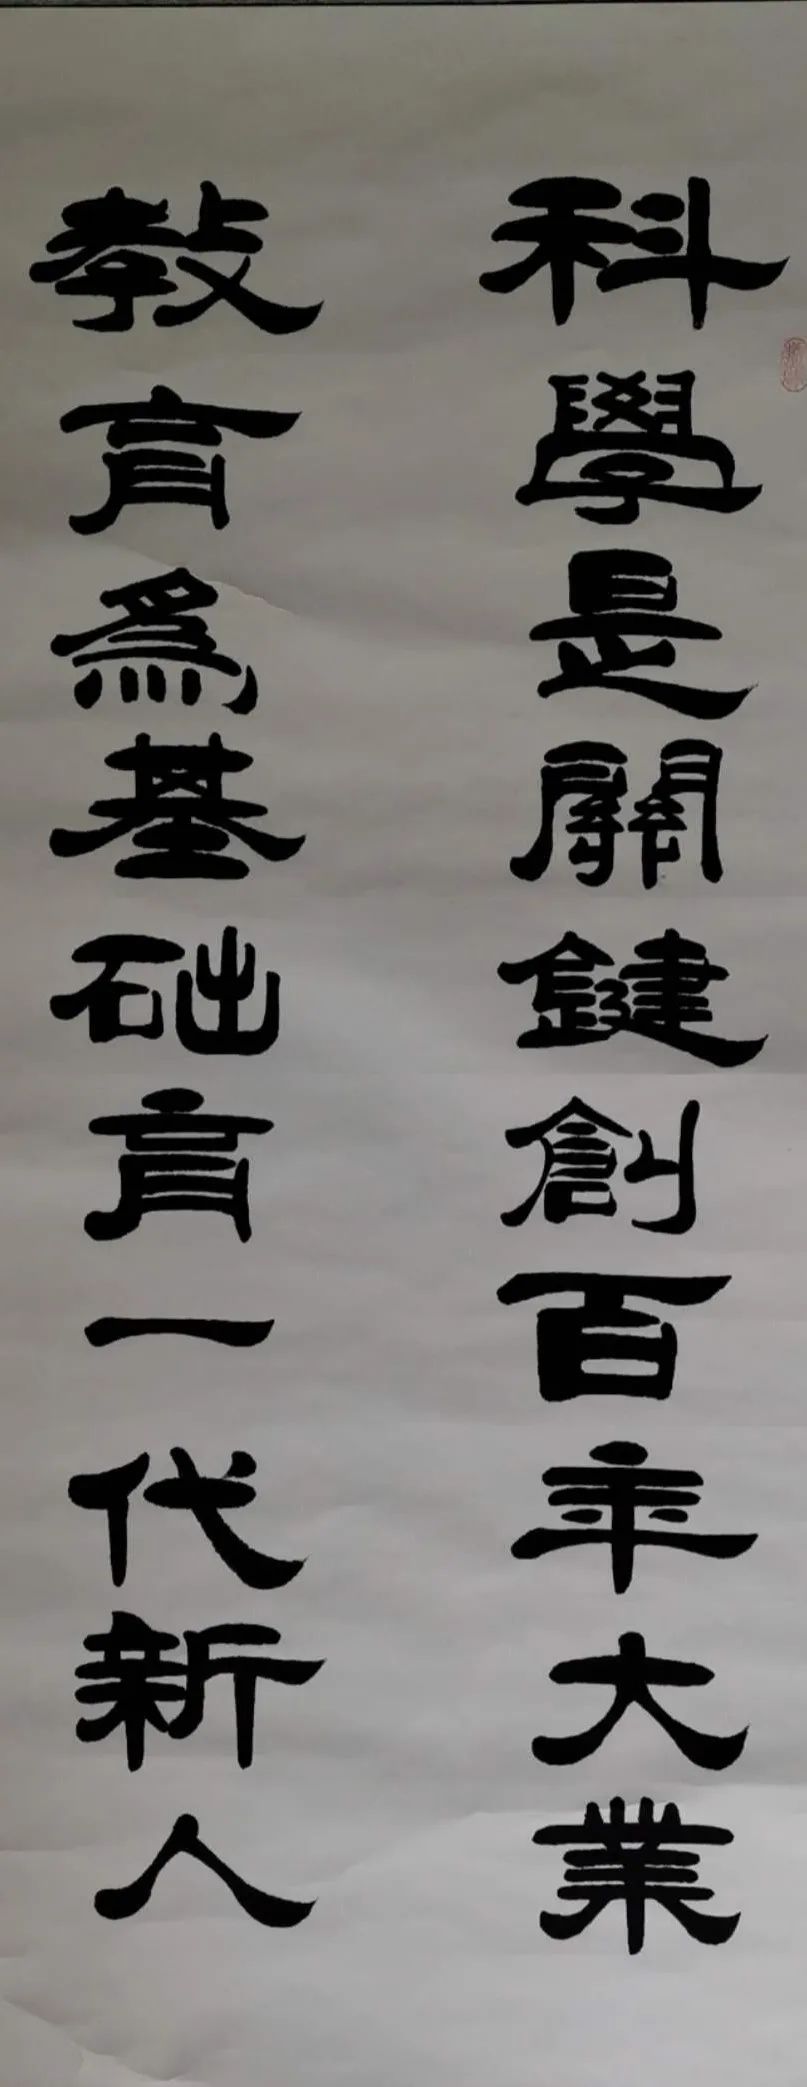 科學是關鍵創百年大業
教育為基础育一代新人